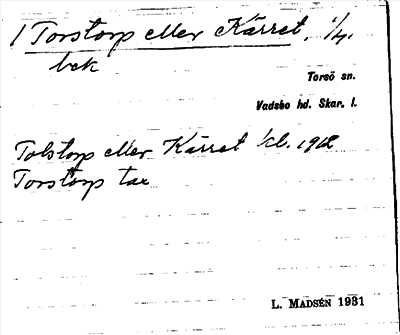 1 Torstorp eller Kärret, 1/4.
bek
Torsö sn.
Vadsbo hd. Skar. l.
Tolstorp eller Kärret kl. 1912
Torstorp tax
L. MADSÉN 1931